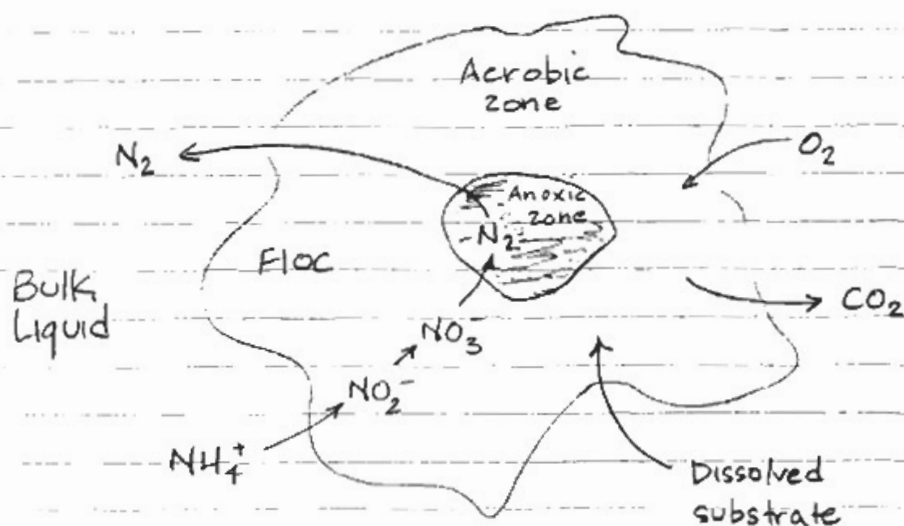 Aerobic
zone
N₂
O₂
Anoxic
zone
N₂
Floc
Bulk
Liquid
CO₂
NO₃
NO₂⁻
NH₄⁺
Dissolved
substrate